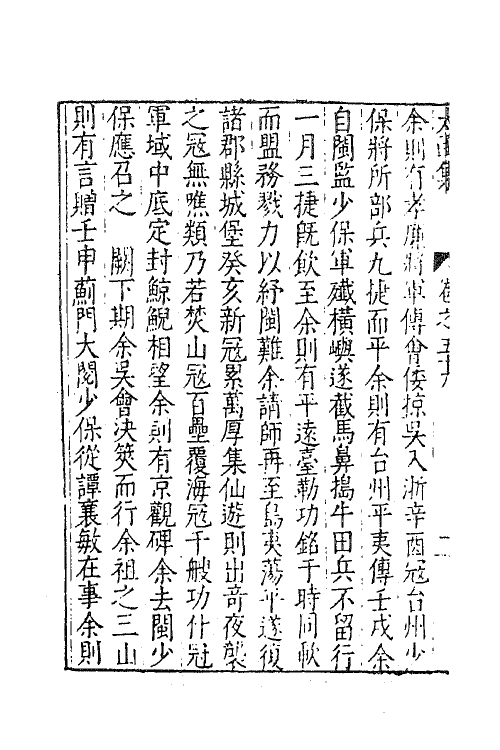 太函集　卷之五十　二
余則有孝廉將軍傳會倭掠吳入浙辛酉寇台州少
保將所部兵九捷而平余則有台州平夷傳壬戌余
自閩監少保軍殱橫嶼遂截馬鼻搗牛田兵不留行
一月三捷旣飲至余則有平遠臺勒功銘于時同㰱
而盟務戮力以紓閩難余請師再至島夷蕩平遂復
諸郡縣城堡癸亥新冦累萬厚集仙遊則出竒夜襲
之冦無噍類乃若焚山冦百壘覆海冦千艘功什冠
軍域中底定封鯨鯢相望余則有京觀碑余去閩少
保應召之　闕下期余吳會決筴而行余祖之三山
則有言贈壬申薊門大閱少保從譚襄敏在事余則